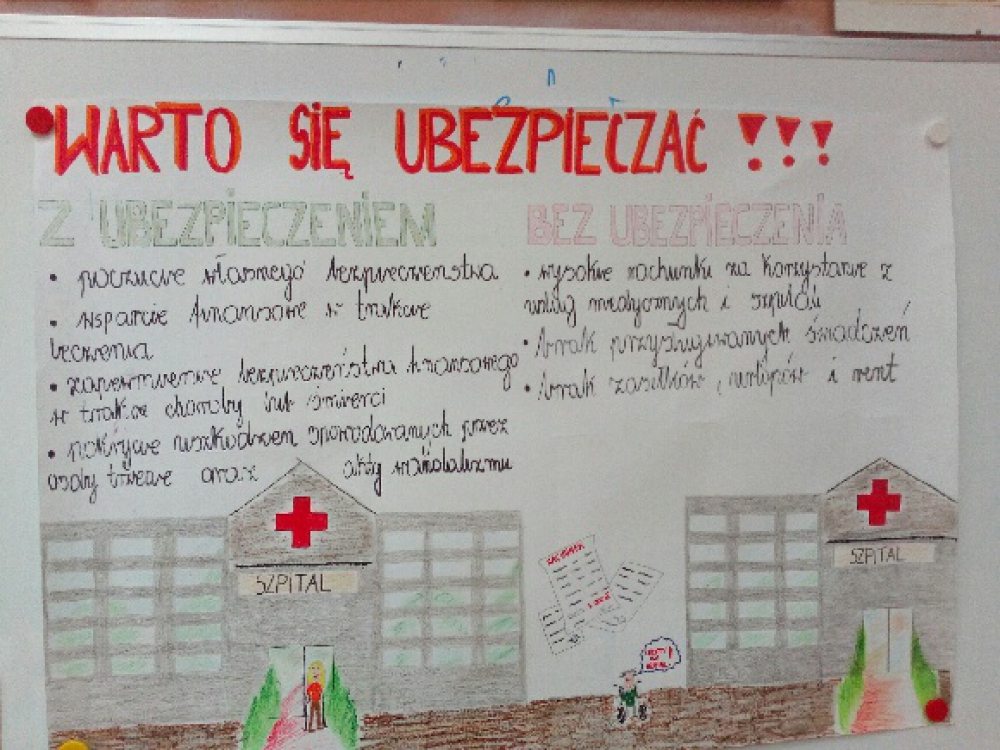 WARTO SIĘ UBEZPIECZAĆ !!!
Z UBEZPIECZENIEM
• poczucie własnego bezpieczeństwa
• wsparcie finansowe w trakcie
leczenia
• zapewnienie bezpieczeństwa finansowego
w trakcie choroby lub śmierci
• pokrycie uszkodzeń spowodowanych przez
osoby trzecie oraz akty wandalizmu
BEZ UBEZPIECZENIA
• wysokie rachunki za korzystanie z
usług medycznych i szpitali
• brak przysługiwanych świadczeń
• brak zasiłków, urlopów i rent
SZPITAL
SZPITAL
RACHUNEK